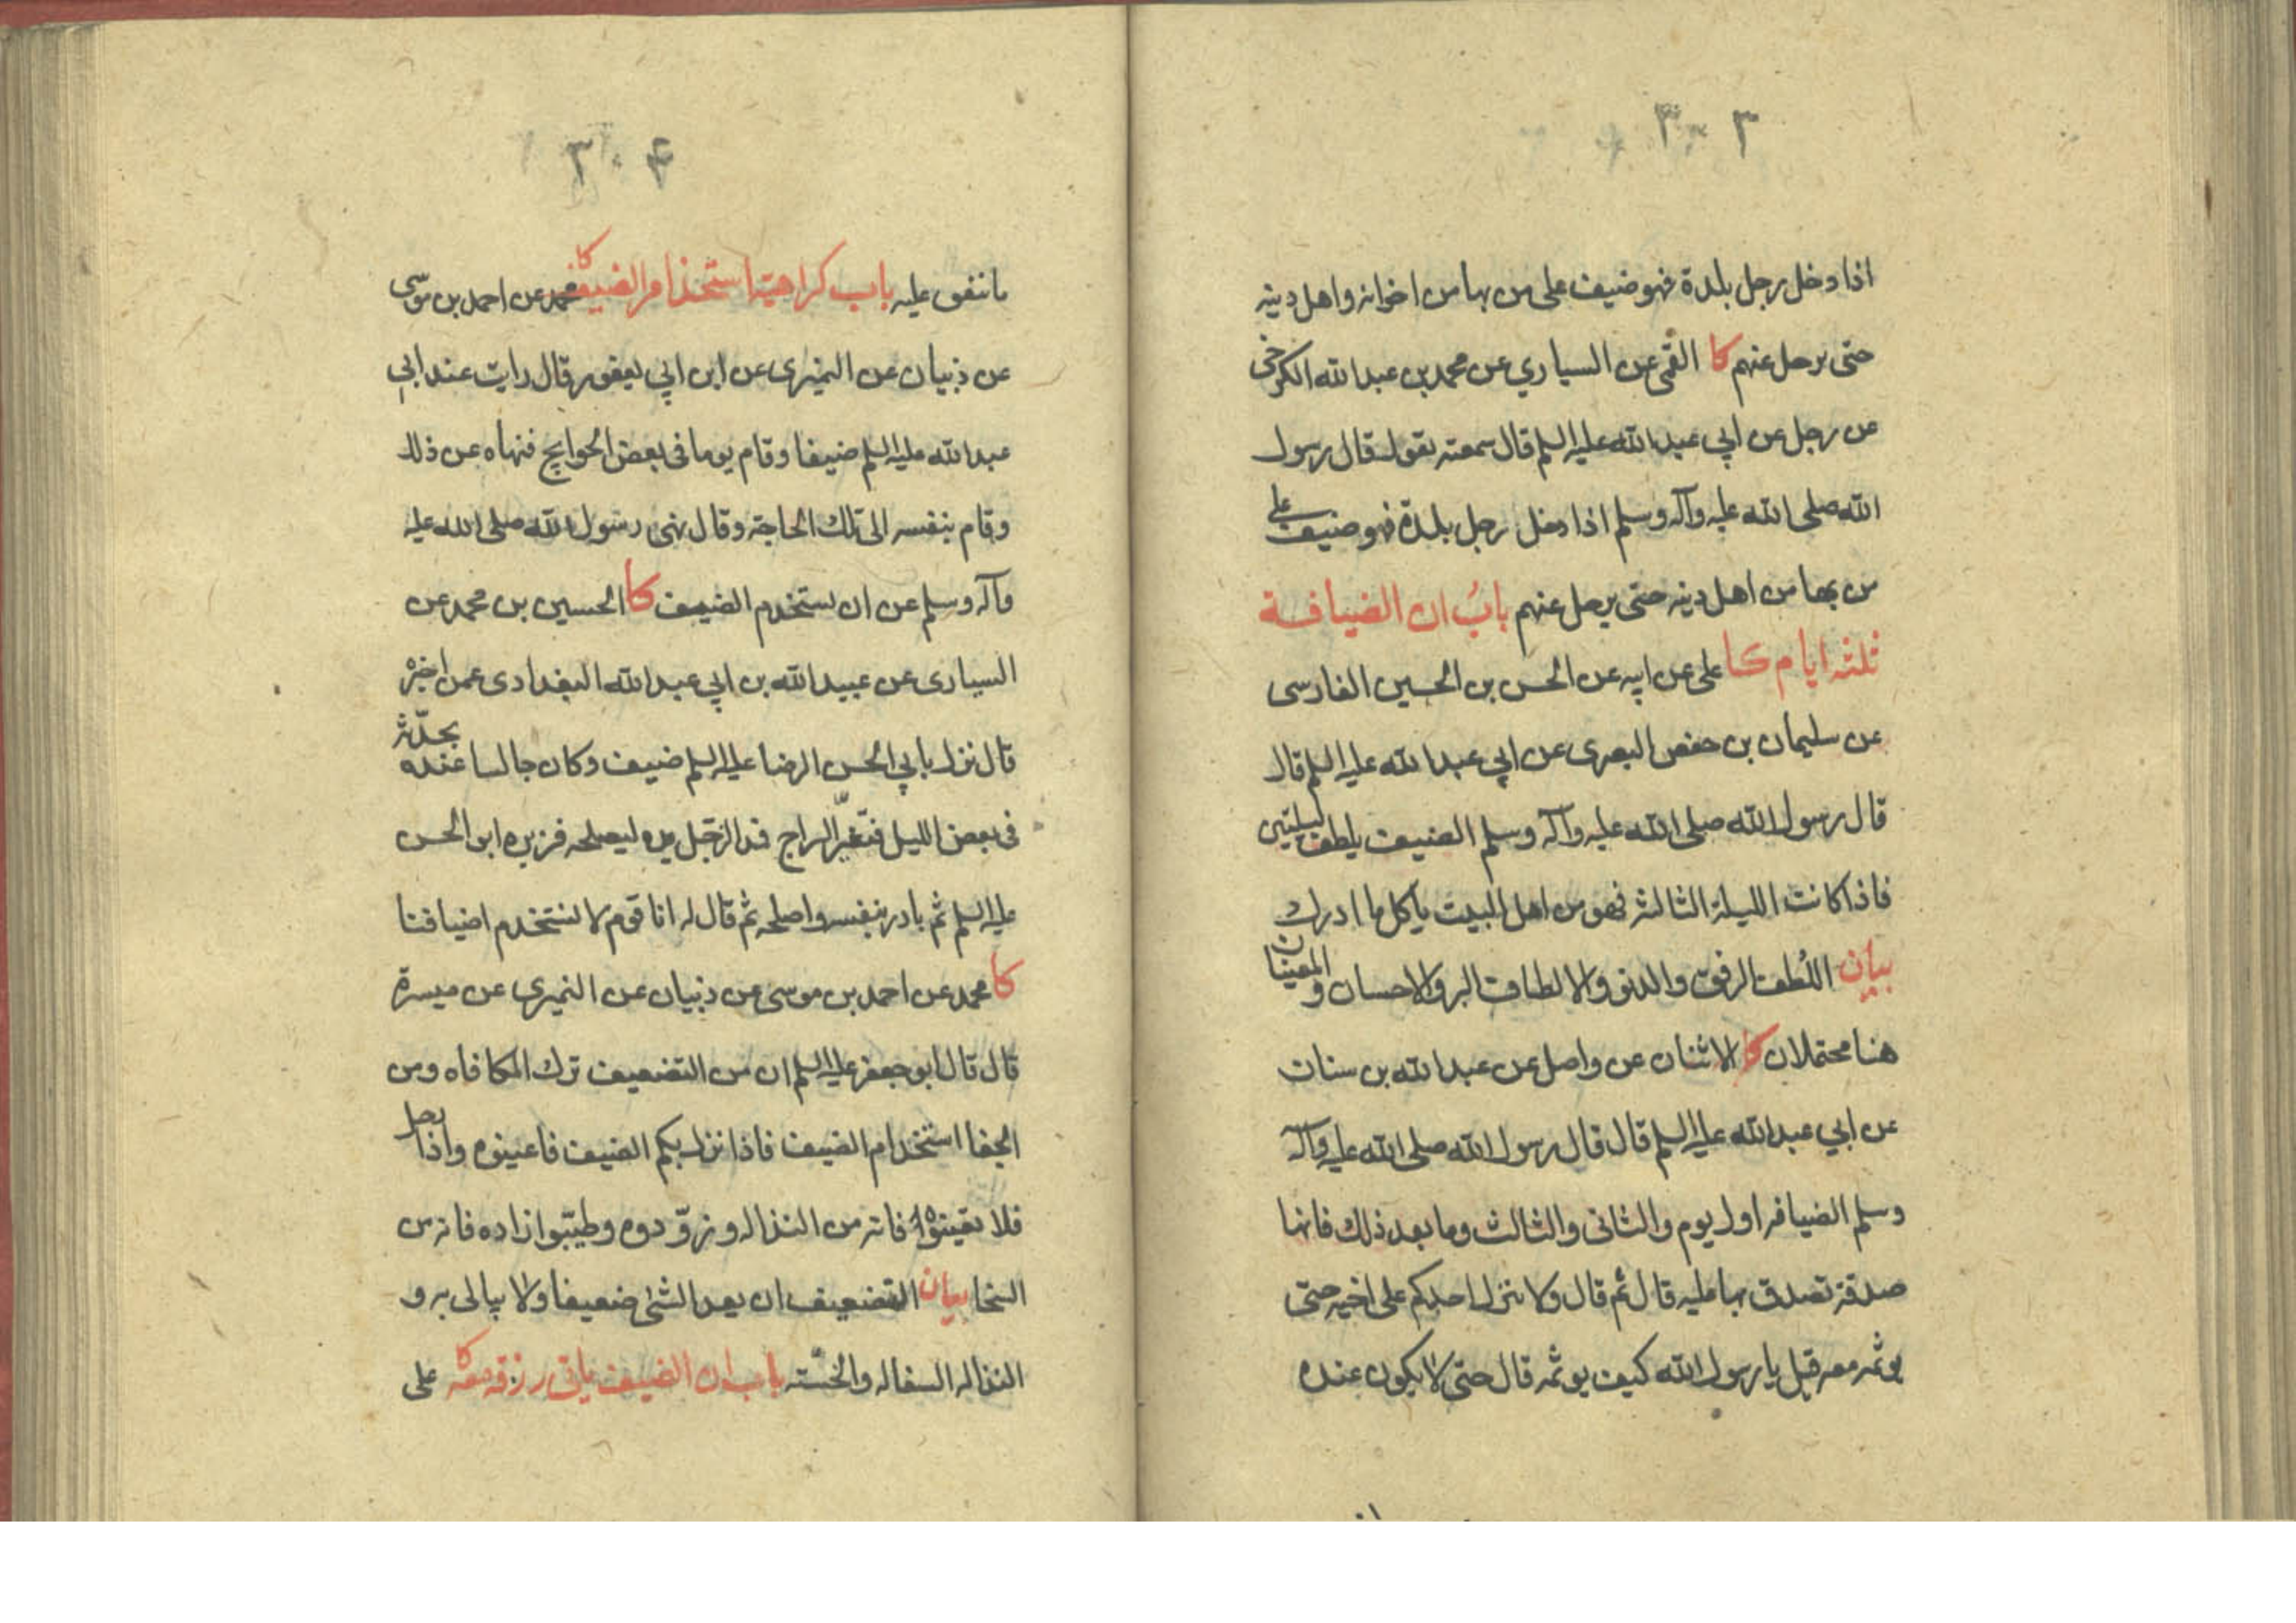 ٣٠٣
اذا دخل رجل بلدة فهو ضيف على من بها من اخوانه واهل دينه
حتى يرحل عنهم كا القمى عن السياري عن محمد بن عبدالله الكرخى
عن رجل عن ابي عبدالله عليه السلم قال سمعته يقول قال رسول
الله صلى الله عليه وآله وسلم اذا دخل رجل بلدة فهو ضيف على
من بها من اهل دينه حتى يرحل عنهم باب ان الضيافة
ثلثه ايام كا على عن ابيه عن الحسن بن الحسين الفارسى
عن سليمان بن حفص البصرى عن ابي عبدالله عليه السلم قال
قال رسول الله صلى الله عليه وآله وسلم الضيف يلطف ليلتين
فاذا كانت الليلة الثالثه فهو من اهل البيت ياكل ما ادرك
بيان اللُطف الرفق والدنو والالطاف البر والاحسان والمعنيان
هنا محتملان كا الاثنان عن واصل عن عبدالله بن سنان
عن ابي عبدالله عليه السلم قال قال رسول الله صلى الله عليه وآله
وسلم الضيافه اول يوم والثانى والثالث وما بعد ذلك فانها
صدقة تصدق بها عليه قال ثم قال ولا ينزل احدكم على اخيه حتى
يوثمه معه قيل يا رسول الله كيف يوثمه قال حتى لا يكون عنده
٣٠۴
ما ننفق عليه باب كراهية استخدام الضيف كا محمد عن احمد بن موسى
عن ذبيان عن النميرى عن ابن ابي يعفور قال رايت عند ابي
عبدالله عليه السلم ضيفا وقام يوما فى بعض الحوايج فنهاه عن ذلك
وقام بنفسه الى تلك الحاجة وقال نهى رسول الله صلى الله عليه
وآله وسلم عن ان يستخدم الضيف كا الحسين بن محمد عن
السيارى عن عبيدالله بن ابي عبدالله البغدادى عمن اخبره
قال نزل بابي الحسن الرضا عليه السلم ضيف وكان جالسا عنده يحدّثه
فى بعض الليل فتغيّر السراج فمد الرجل يده ليصلحه فزبره ابو الحسن
عليه السلم ثم بادر بنفسه واصلحه ثم قال له انا قوم لا نستخدم اضيافنا
كا محمد عن احمد بن موسى عن ذبيان عن النميرى عن ميسرة
قال قال ابو جعفر عليه السلم ان من التضعيف ترك المكافاه ومن
الجفا استخدام الضيف فاذا نزل بكم الضيف فاعينوه واذا رحل
فلا تعينوه فانه من النذاله وزوّدوه وطيّبوا زاده فانه من
السخا بيان التضعيف ان يعد الشئ ضعيفا ولا يبالى به و
النذاله السفاله والخسّته باب ان الضيف ياتى رزقه معه كا على